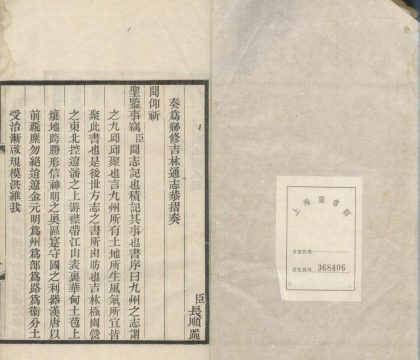 臣長順跪
奏爲纂修吉林通志恭摺奏
聞仰祈
聖鑒事竊臣聞志記也積記其事也書序曰九州之志謂
之九邱邱聚也言九州所有土地所生風氣所宜皆
聚此書也是後世方志之書所由昉也吉林極國
之東北控遼瀋之上游襟帶江山表裏華甸土苞上
壤地跨勝形信神明之奥區寔守國之利器漢唐以
前羈縻勿絕迨遼金元明爲州爲部爲路爲衞分土
受治漸改規模洪維我
368496